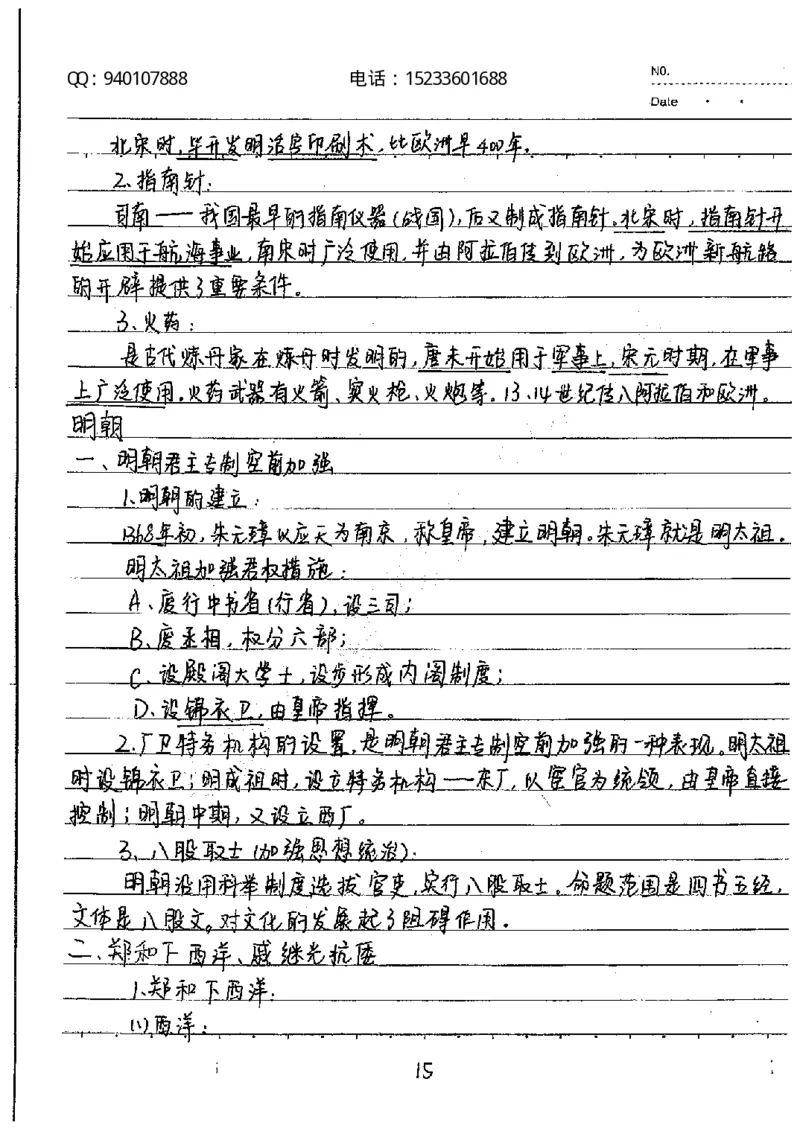 QQ：940107888 电话：15233601688 NO.
Date
北宋时，毕升发明活字印刷术，比欧洲早400年。
2、指南针：
司南——我国最早的指南仪器(战国)，后又制成指南针。北宋时，指南针开
始应用于航海事业，南宋时广泛使用，并由阿拉伯传到欧洲，为欧洲新航路
的开辟提供了重要条件。
3、火药：
是古代炼丹家在炼丹时发明的，唐末开始用于军事上，宋元时期，在军事
上广泛使用。火药武器有火箭、突火枪、火炮等。13、14世纪传入阿拉伯和欧洲。
明朝
一、明朝君主专制空前加强
1、明朝的建立：
1368年初，朱元璋以应天为南京，称皇帝，建立明朝。朱元璋就是明太祖。
明太祖加强君权措施：
A、废行中书省(行省)，设三司；
B、废丞相，权分六部；
C、设殿阁大学士，设步形成内阁制度；
D、设锦衣卫，由皇帝指挥。
2、厂卫特务机构的设置，是明朝君主专制空前加强的一种表现。明太祖
时设锦衣卫；明成祖时，设立特务机构——东厂，以宦官为统领，由皇帝直接
控制；明朝中期，又设立西厂。
3、八股取士(加强思想统治)：
明朝沿用科举制度选拔官吏，实行八股取士。命题范围是四书五经，
文体是八股文。对文化的发展起了阻碍作用。
二、郑和下西洋、戚继光抗倭
1、郑和下西洋：
(1)西洋：
15